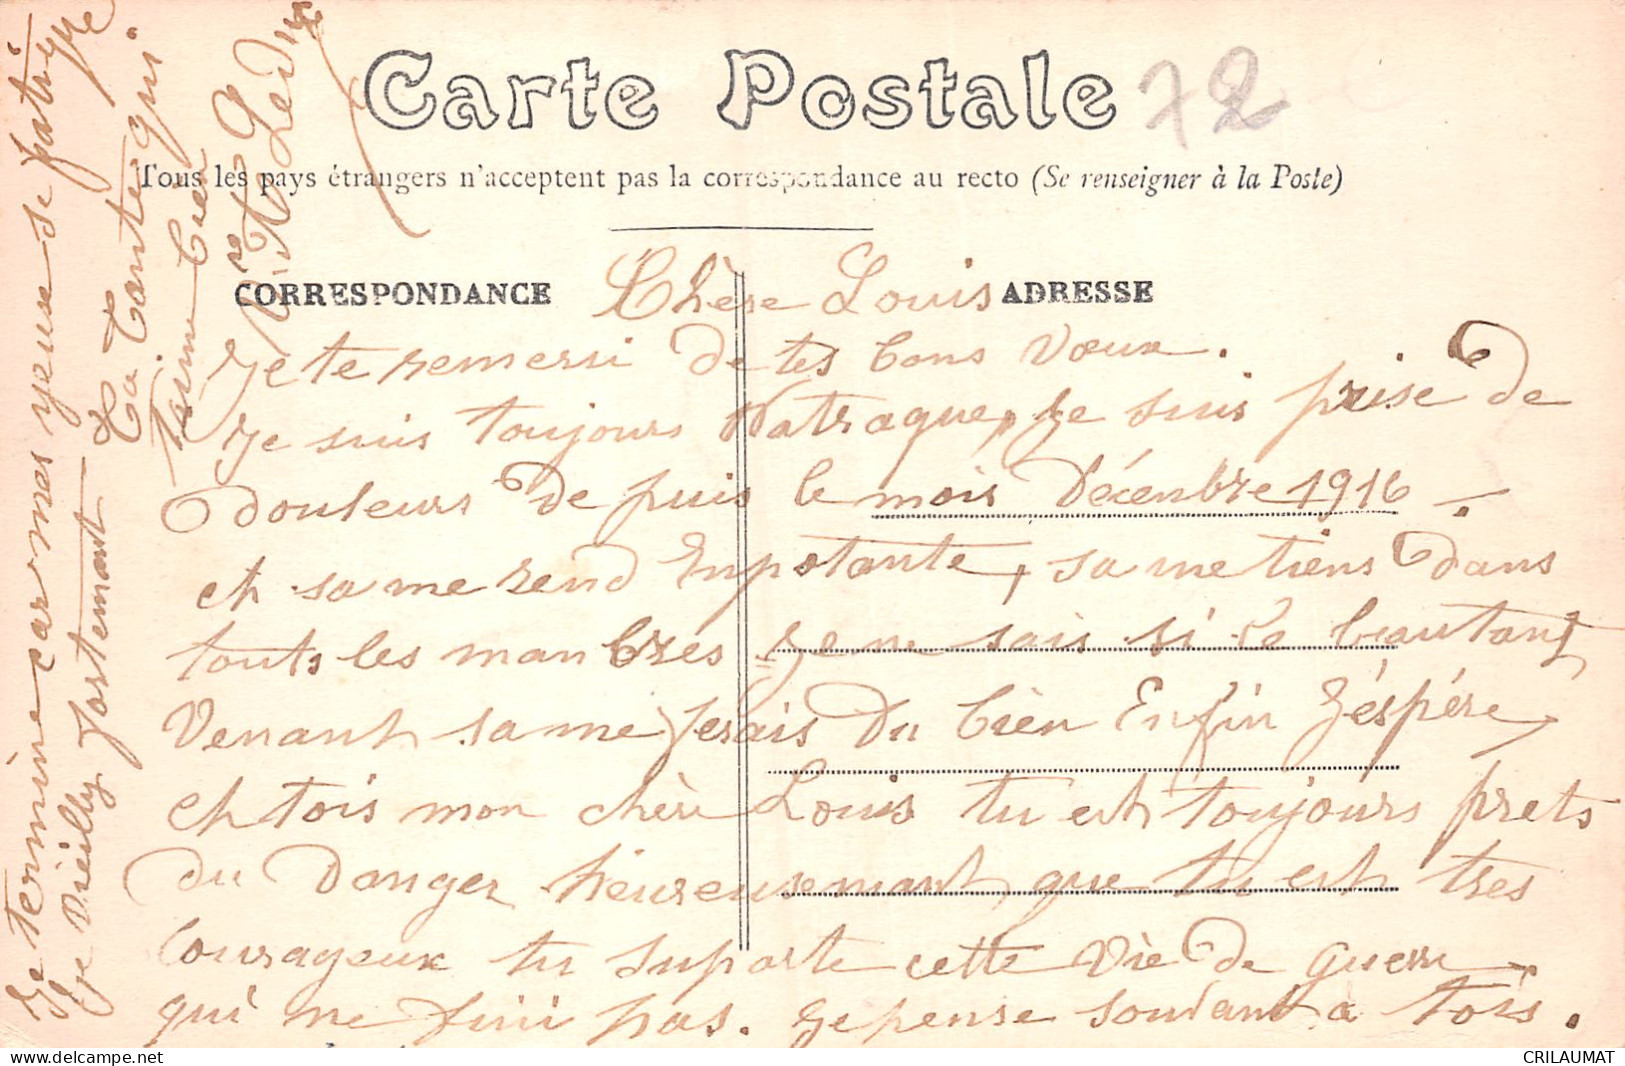 Carte Postale
72
Tous les pays étrangers n'acceptent pas la correspondance au recto (Se renseigner à la Poste)
CORRESPONDANCE
ADRESSE
Chère Louis
Je te remersi de tes bons Vœux.
Je suis toujours Patraque, Je suis prise de
Douleurs De puis le mois Décenbre 1916 -
et sa me rend Enpotante, sa me tiens Dans
touts les manbres Je ne sais si le beautant
Venant sa me ferais Du bien Enfin J'éspére,
et tois mon chèr Louis tu est toujours prets
du Danger heureusemant que tu est tres
Courageux tu suporte cette Viè De guerre
qui ne fini pas. Je pense souvant a tois.
Je termine car mes yeuse se fatigue
Je Vieilly fortemant
Ta Tante qui
T'aime bien